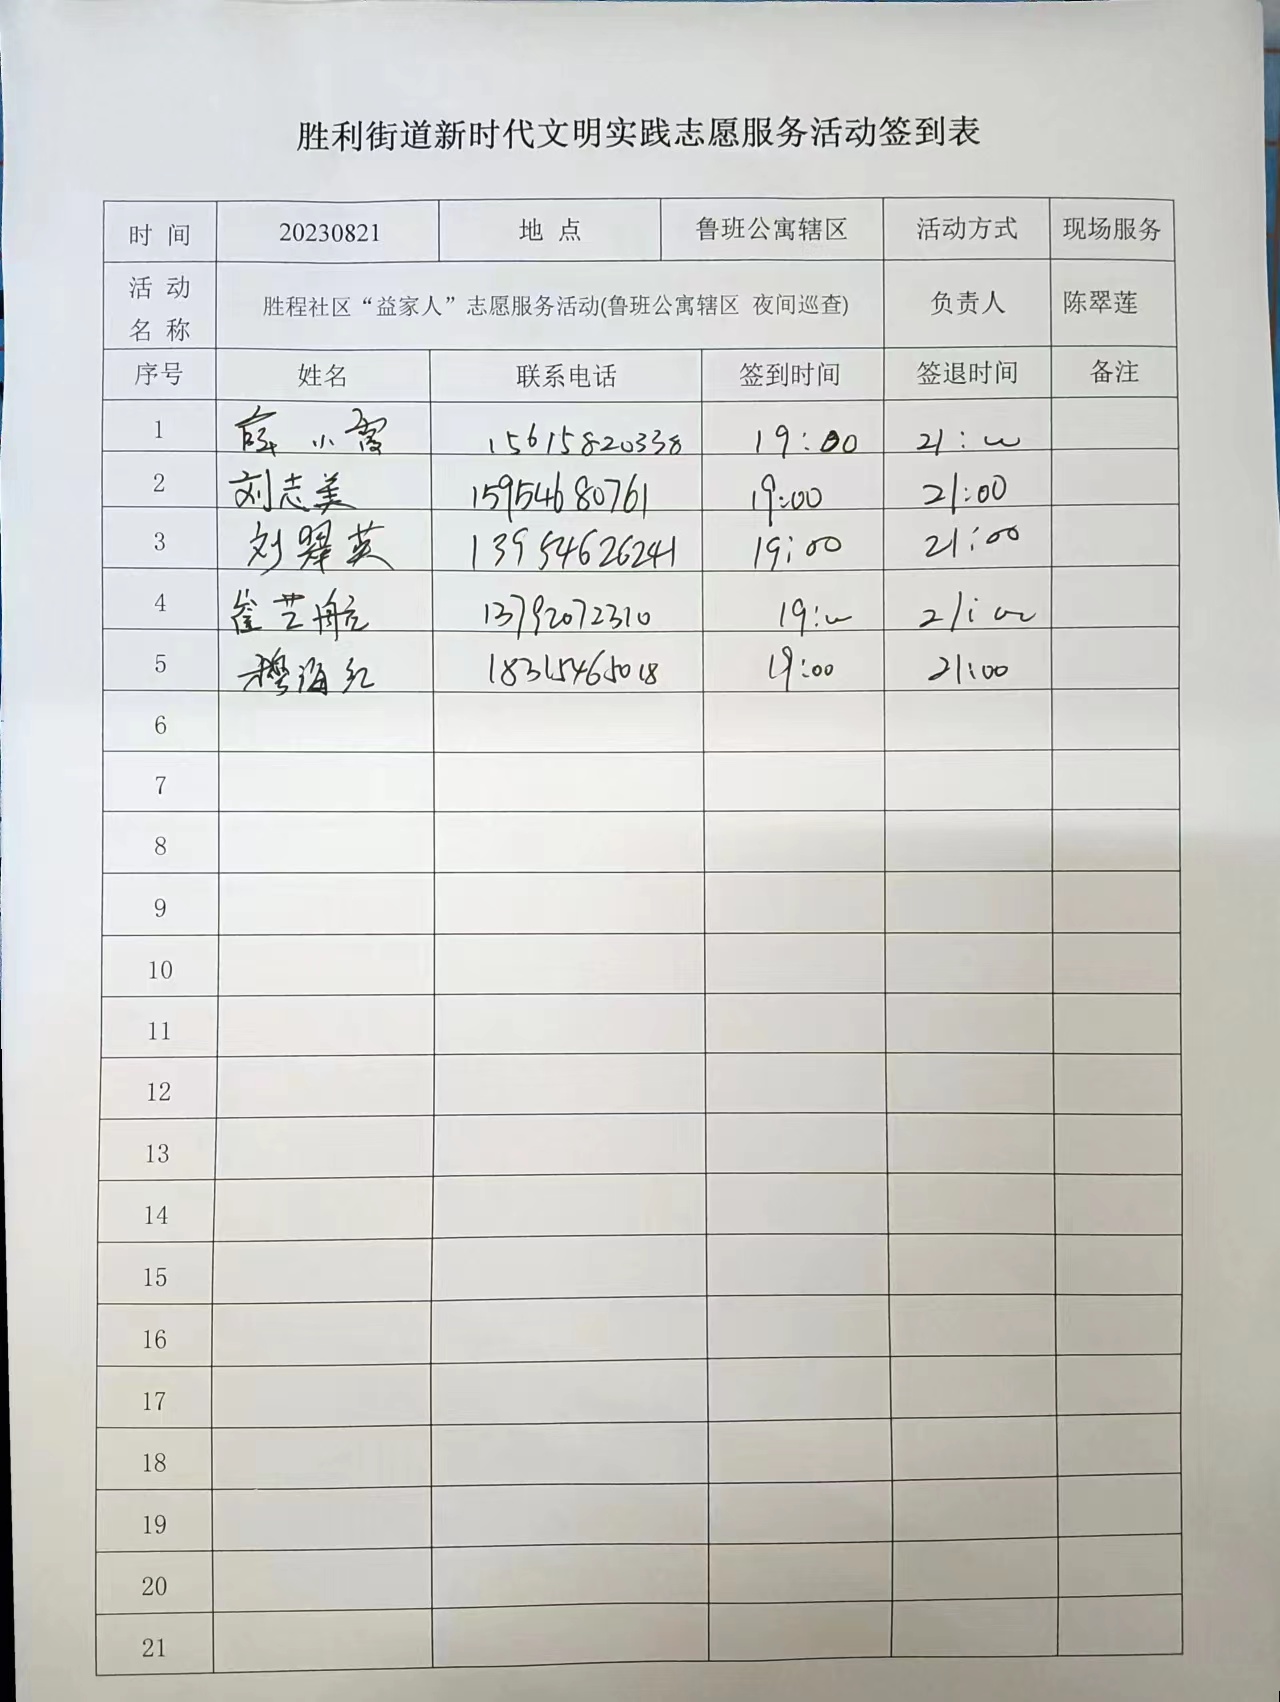 胜利街道新时代文明实践志愿服务活动签到表
时 间 20230821 地 点 鲁班公寓辖区 活动方式 现场服务
活 动 名 称 胜程社区“益家人”志愿服务活动(鲁班公寓辖区 夜间巡查) 负责人 陈翠莲
序号 姓名 联系电话 签到时间 签退时间 备注
1 薛小霞 15615820338 19:00 21:00
2 刘志美 15954680761 19:00 21:00
3 刘翠英 13954626241 19:00 21:00
4 崔芸航 13792072310 19:00 21:00
5 穆海红 18315465018 19:00 21:00
6
7
8
9
10
11
12
13
14
15
16
17
18
19
20
21